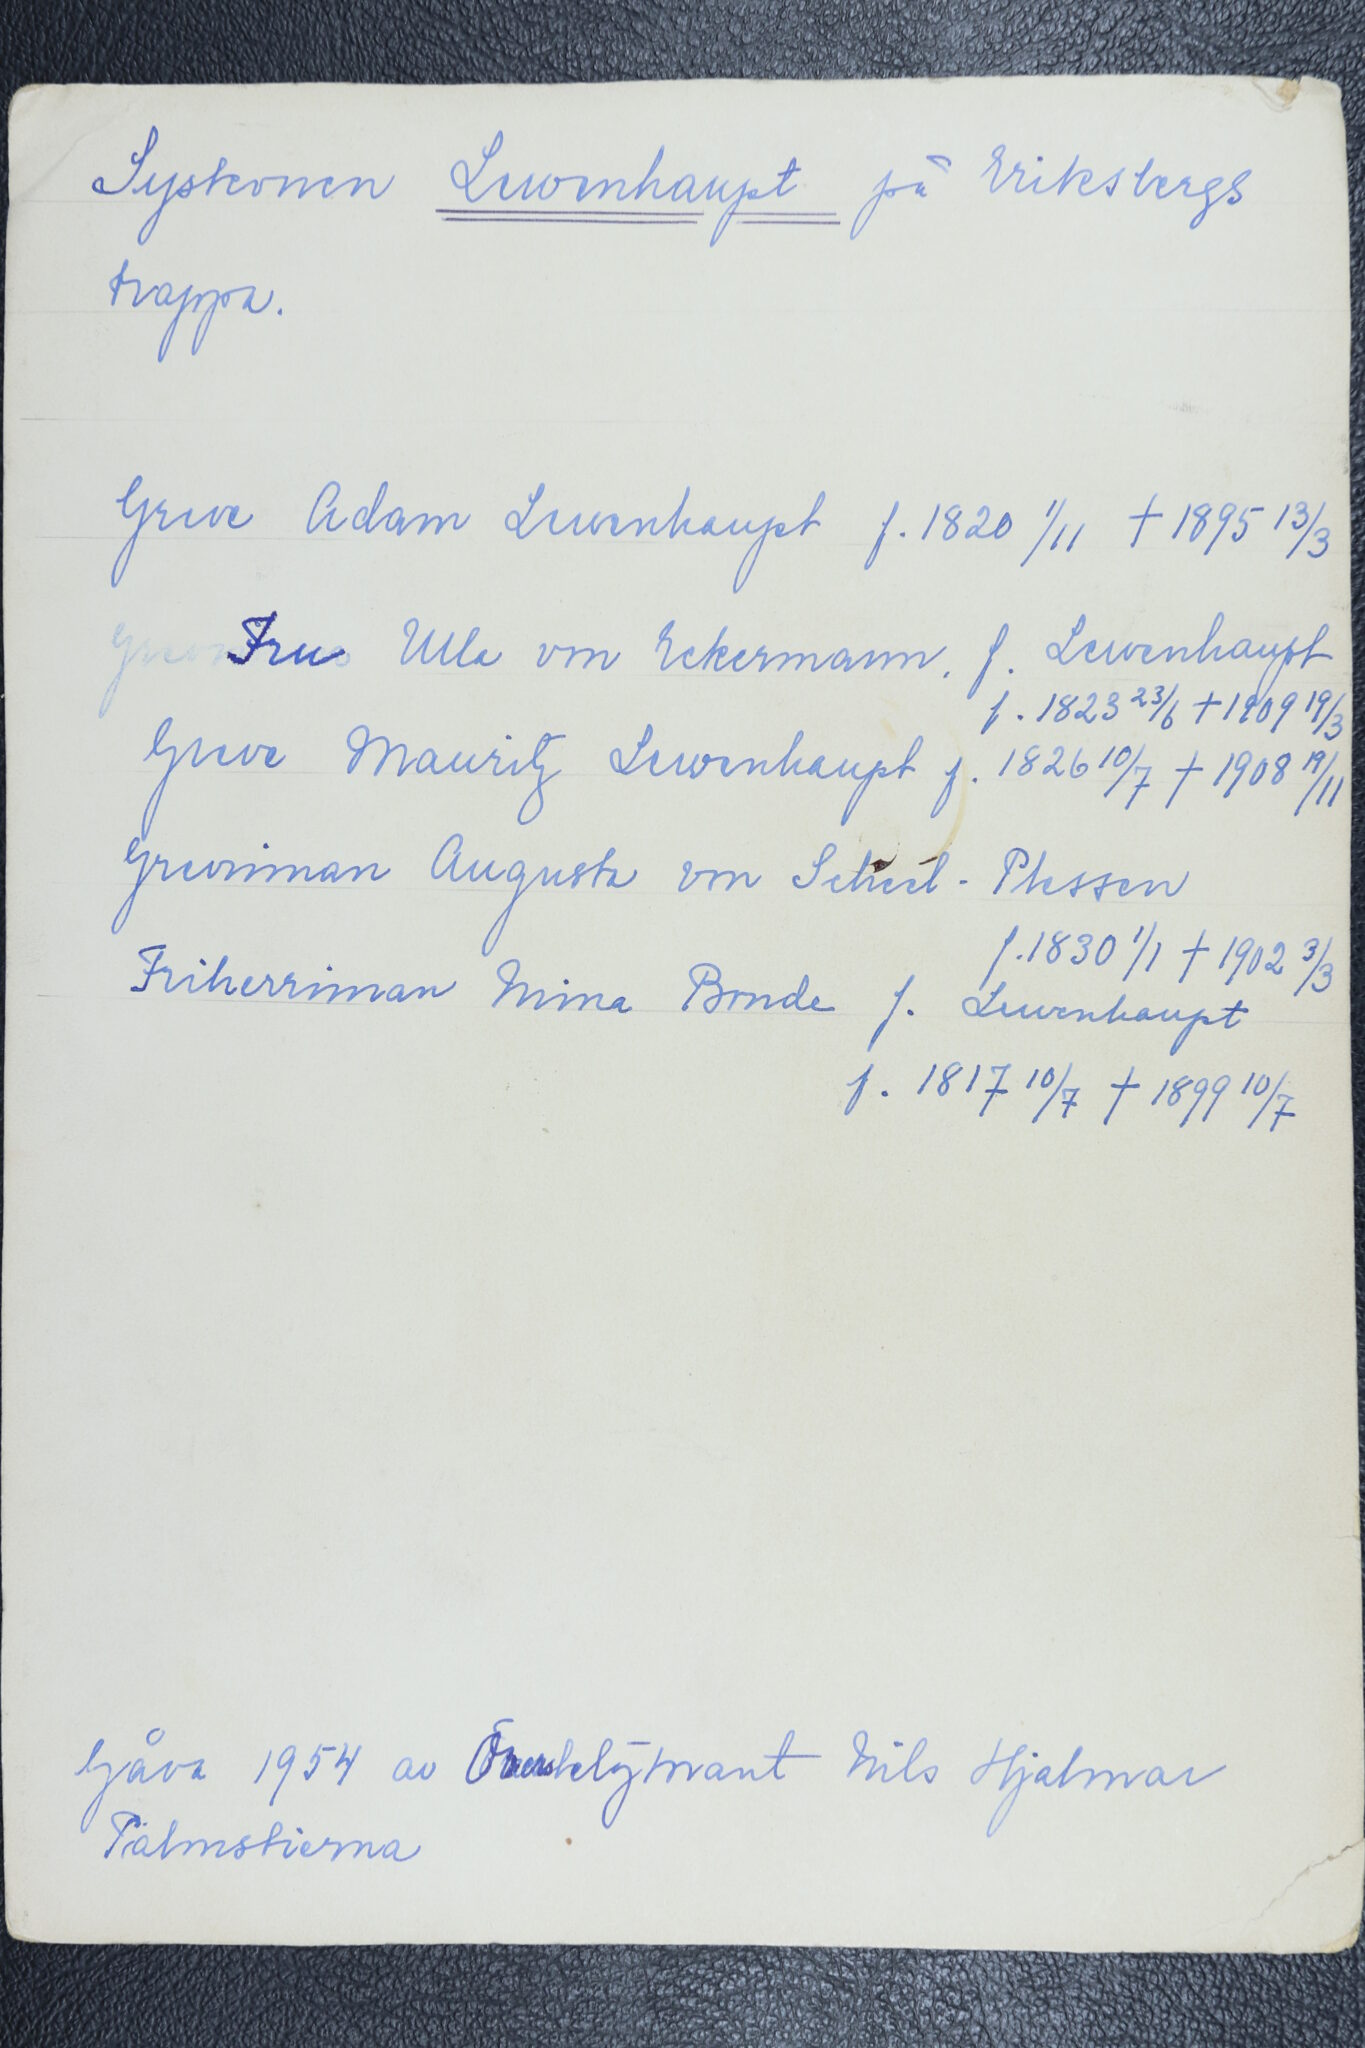 Syskonen Lewenhaupt på Eriksbergs
trappa.
Greve Adam Lewenhaupt f. 1820 1/11 † 1895 13/3
Fru Ulla von Eckermann, f. Lewenhaupt
f. 1823 23/6 † 1909 19/3
Greve Mauritz Lewenhaupt f. 1826 10/7 † 1908 19/11
Grevinnan Augusta von Scheel-Plessen
f. 1830 1/1 † 1902 3/3
Friherrinnan Mina Bonde f. Lewenhaupt
f. 1817 10/7 † 1899 10/7
Gåva 1954 av Överstelöjtnant Nils Hjalmar
Palmstierna